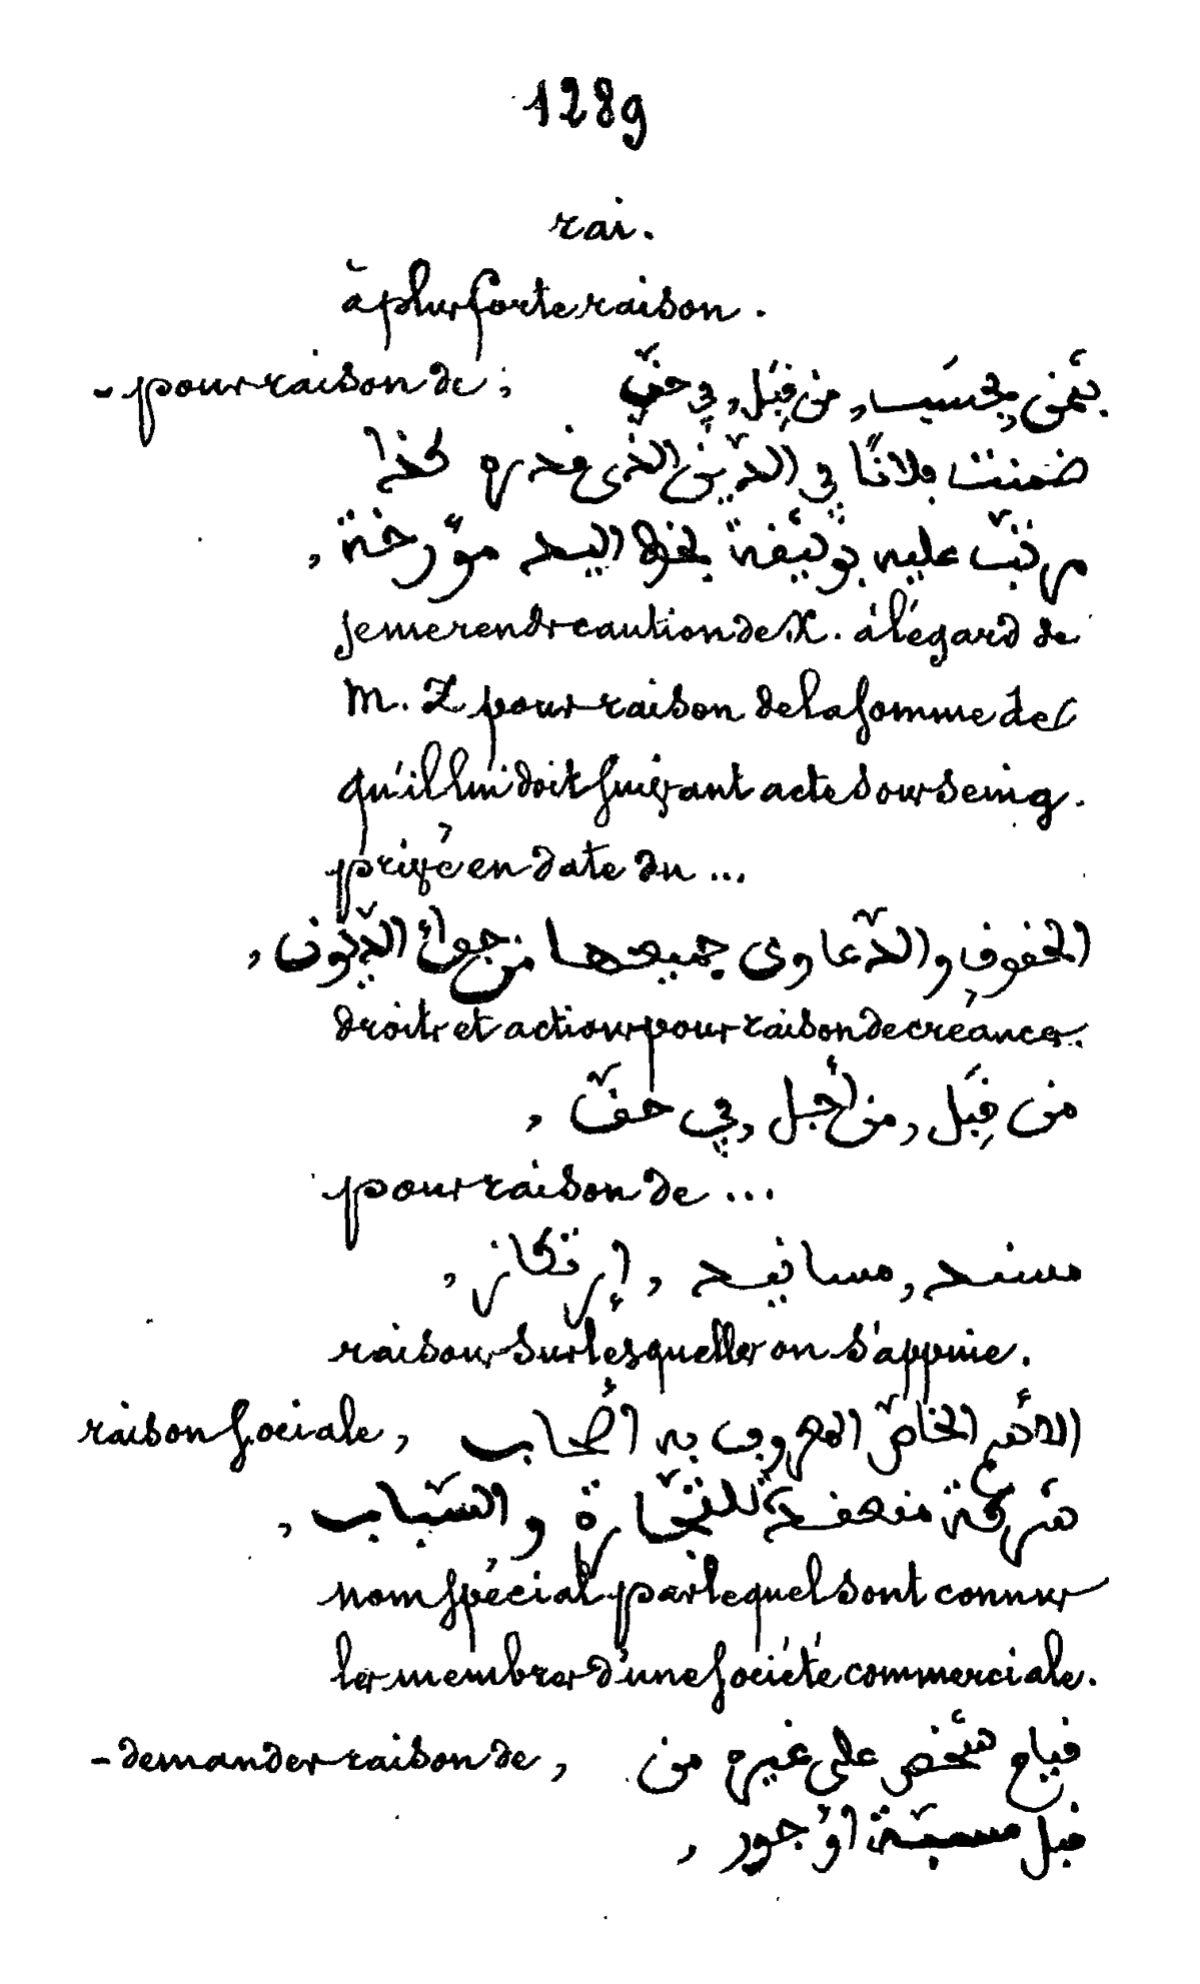 1289
rai.
à plus forte raison.
- pour raison de; بثمن, بحسب, من قِبَل, في حقّ
ضمنت فلانًا في الدّين الذي قدره كذا
مرتّب عليه بوثيقة بخط اليد مؤرخة,
je me rends caution de X. à l'égard de
M. Z pour raison de la somme de
qu'il lui doit suivant acte sous seing
privé en date du ...
الحقوق والدّعاوى جميعها من جهة الدّيون,
droits et actions pour raison de créances.
من قِبَل, من أجل, في حقّ,
pour raison de ...
مسند, مسانيد, إرتكاز,
raisons sur lesquelles on s'appuie.
raison sociale, الاسم الخاصّ المعروف به أصحاب
شركة منعقدة للتّجارة والسّباب,
nom spécial par lequel sont connus
les membres d'une société commerciale.
- demander raison de, قيام شخص على غيره من
قبل مسبّة أو جور,